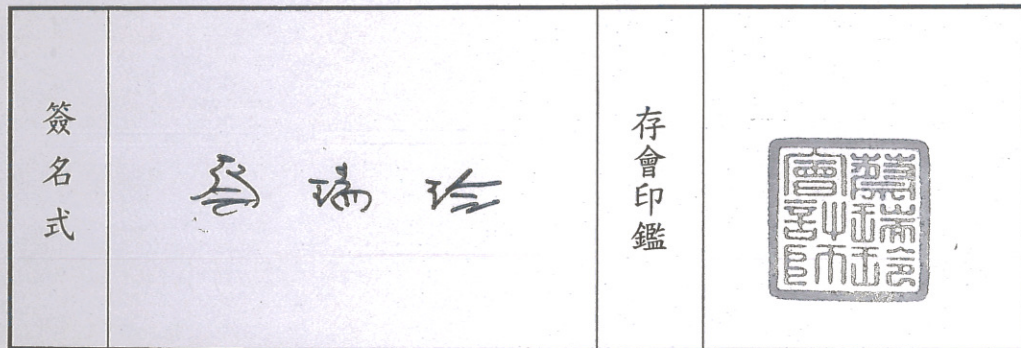 簽名式
蔡瑞玲
存會印鑑
蔡瑞玲
會計師